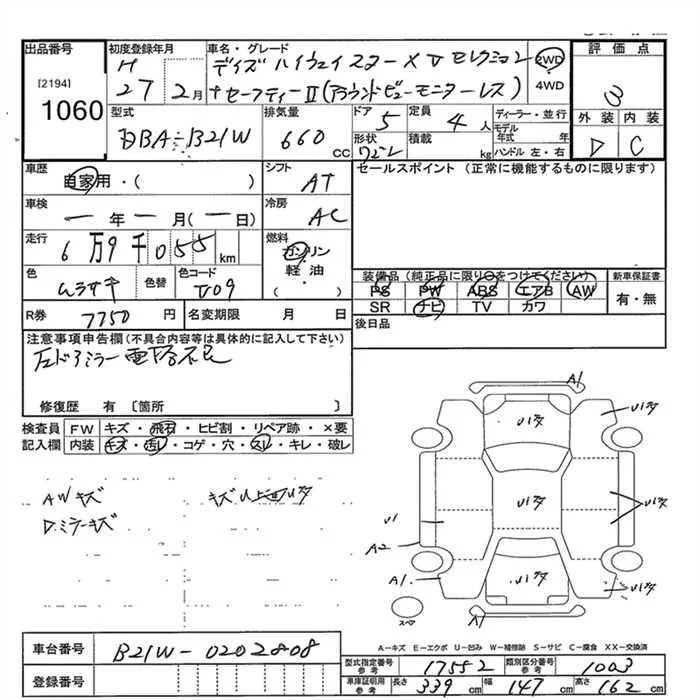 出品番号 初度登録年月 車名・グレード 評価点
[2194] H デイズ ハイウェイスターX Vセレクション 2WD
1060 27 2月 +セーフティーII(アラウンドビューモニターレス) 4WD 3
型式 排気量 ドア 5 定員 4人 ディーラー・並行 外装 内装
DBA-B21W 660cc 形状 ワゴン 積載 kg モデル年式 年 ハンドル 左・右 D C
車歴 自家用・( ) シフト AT セールスポイント (正常に機能するものに限ります)
車検 一年一月(一日) 冷房 AC
走行 6万9千055km 燃料 ガソリン
軽油
( )
色 ムラサキ 色替 色コード
装備品(純正品に限り○をつけてください) 新車保証書
PS PW ABS エアB AW 有・無
SR ナビ TV カワ
R券 7750円 名変期限 月 日 後日品
注意事項申告欄(不具合内容等は具体的に記入して下さい)
左ドアミラー電格不良
修復歴 有 〔箇所 〕
検査員 FW キズ・飛石・ヒビ割・リペア跡・×要
記入欄 内装 キズ・汚レ・コゲ・穴・スレ・キレ・破レ
AWキズ
Dミラーキズ
A1
U1
A2
A1
A1
スペア
A-キズ E-エクボ U-凹み W-補修跡 S-サビ C-腐食 XX-交換済
車台番号 B21W-0202808
登録番号
型式指定番号 参考 17552 類別区分番号 参考 1003
車庫証明用 参考 長さ 339cm 幅 147cm 高さ 162cm